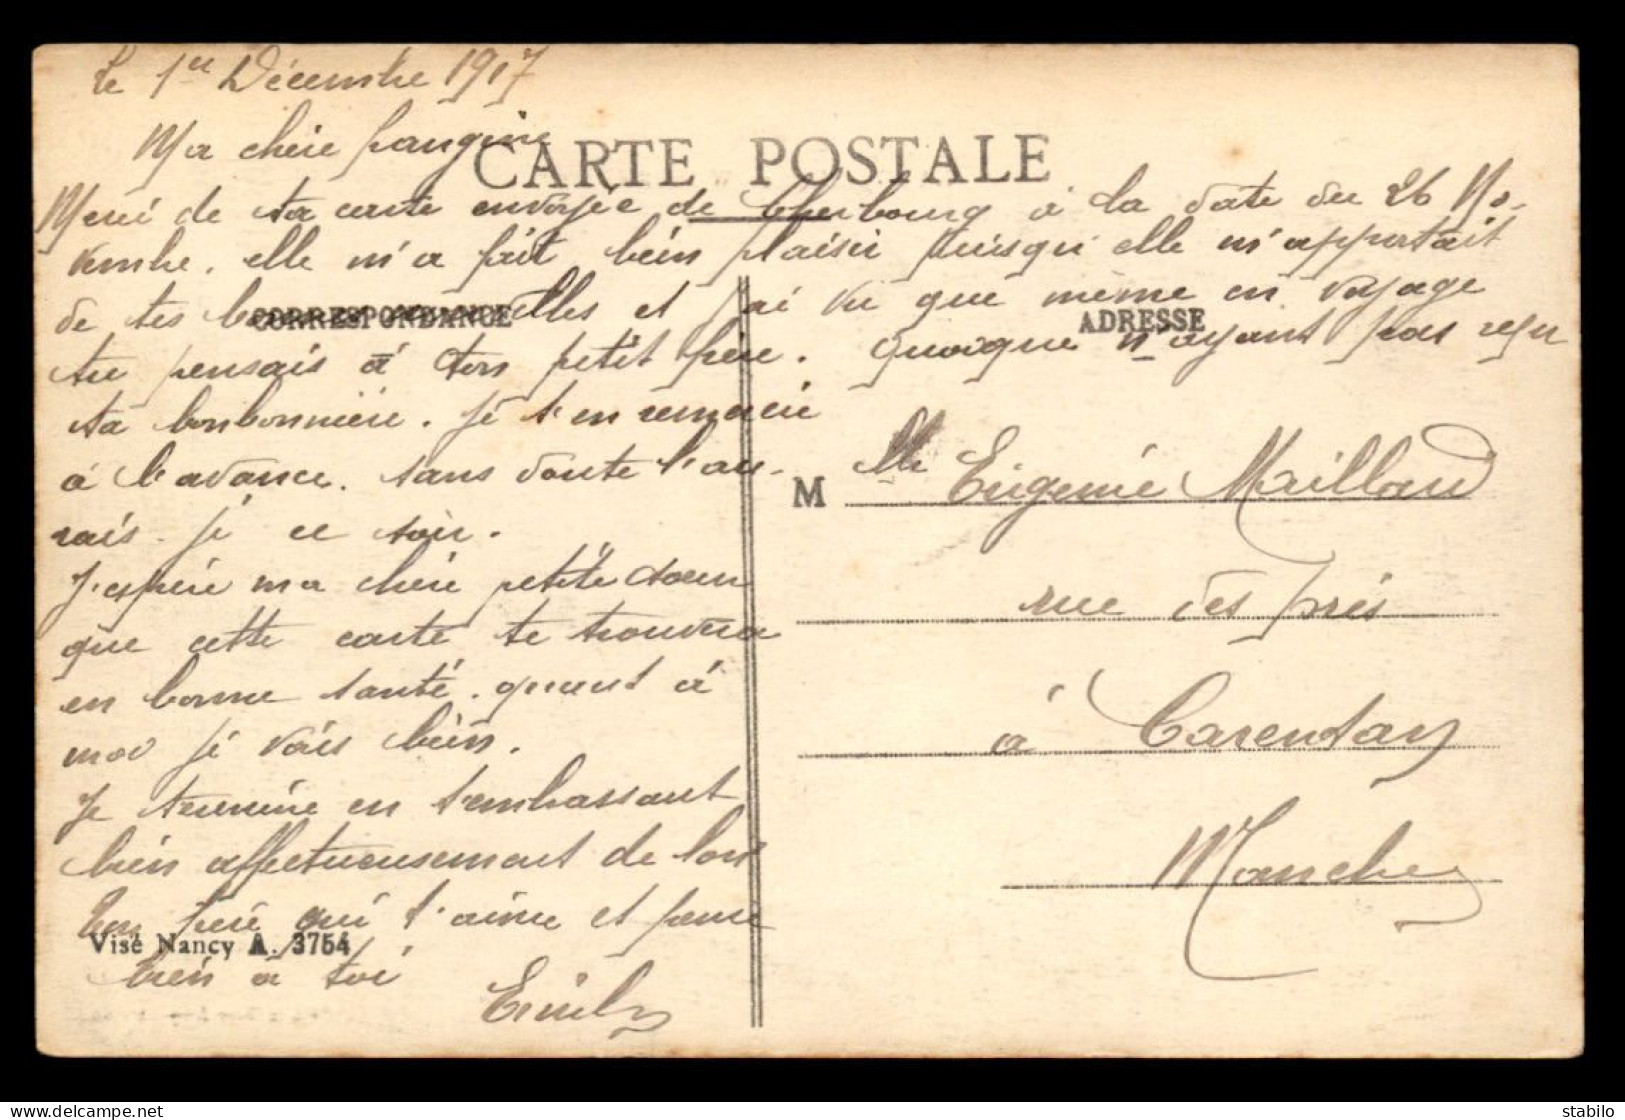 le 1er Décembre 1917
Ma chère frangine
CARTE POSTALE
Merci de ta carte envoyée de Cherbourg à la date du 26 No-
vembre. elle m'a fait bien plaisir puisqu'elle m'apportait
de tes bonnes nouvelles et j'ai vu que même en voyage
CORRESPONDANCE
ADRESSE
tu pensais à ton petit frère. Quoique n'ayant pas reçu
ta bonbonnière. Je t'en remercie
à l'avance. sans doute l'au-
rais-je ce soir.
J'espère ma chère petite sœur
que cette carte te trouvera
en bonne santé. quant à
moi je vais bien.
Je termine en t'embrassant
bien affectueusement de loin
Ton frère qui t'aime et pense
Visé Nancy A. 3754
bien à toi
Emile
M lle Eugénie Maillard
rue des Prés
à Carentan
Manche
stabilo